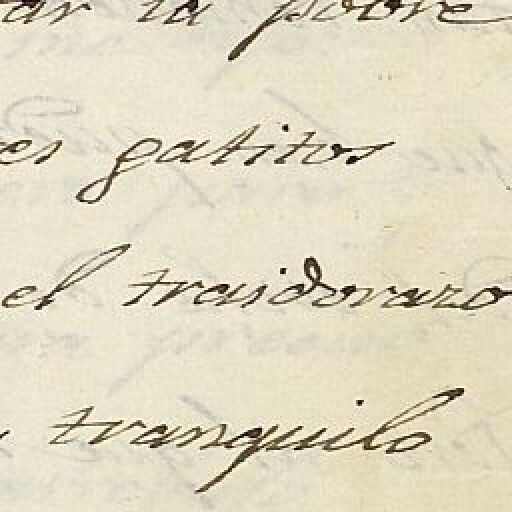 tar la pobre
es gatitos
el traidorazo
tranquilo